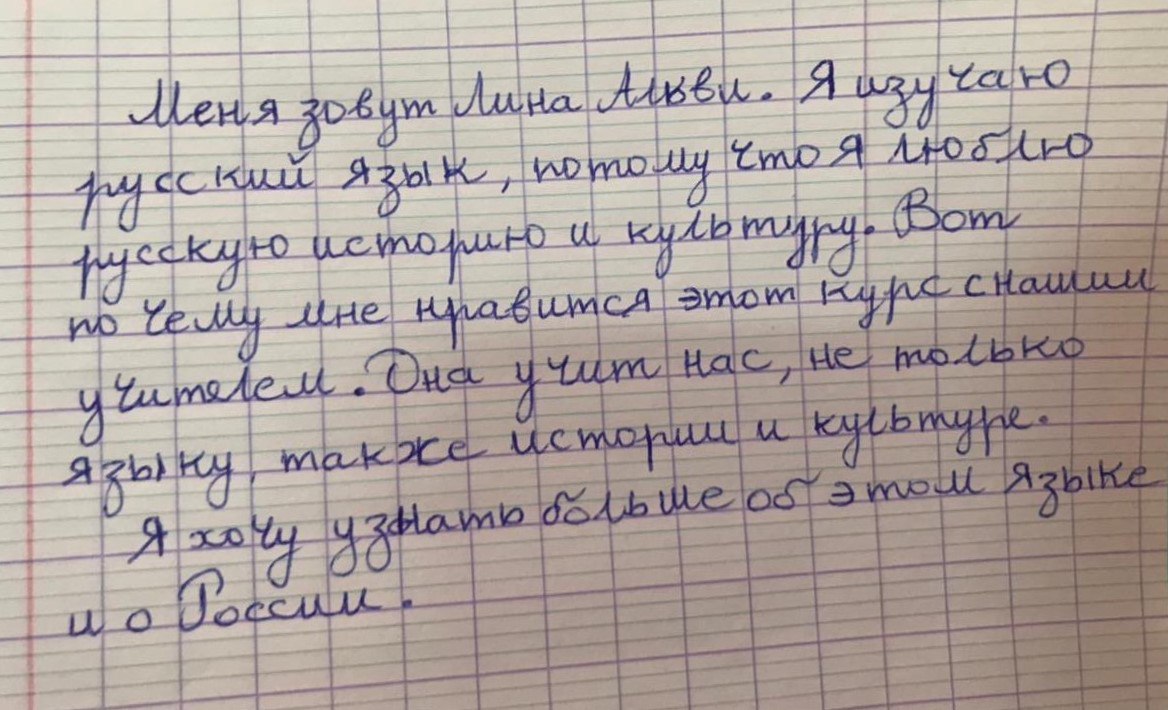 Меня зовут Лина Алюви. Я изучаю
русский язык, потому что я люблю
русскую историю и культуру. Вот
почему мне нравится этот курс с нашим
учителем. Она учит нас, не только
языку, также истории и культуре.
Я хочу узнать больше об этом языке
и о России.